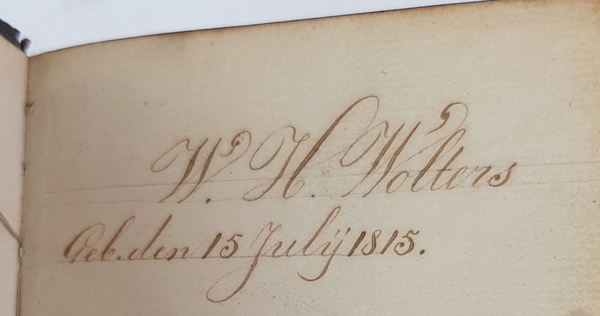 W. H. Wolters
Geb. den 15 Julÿ 1815.